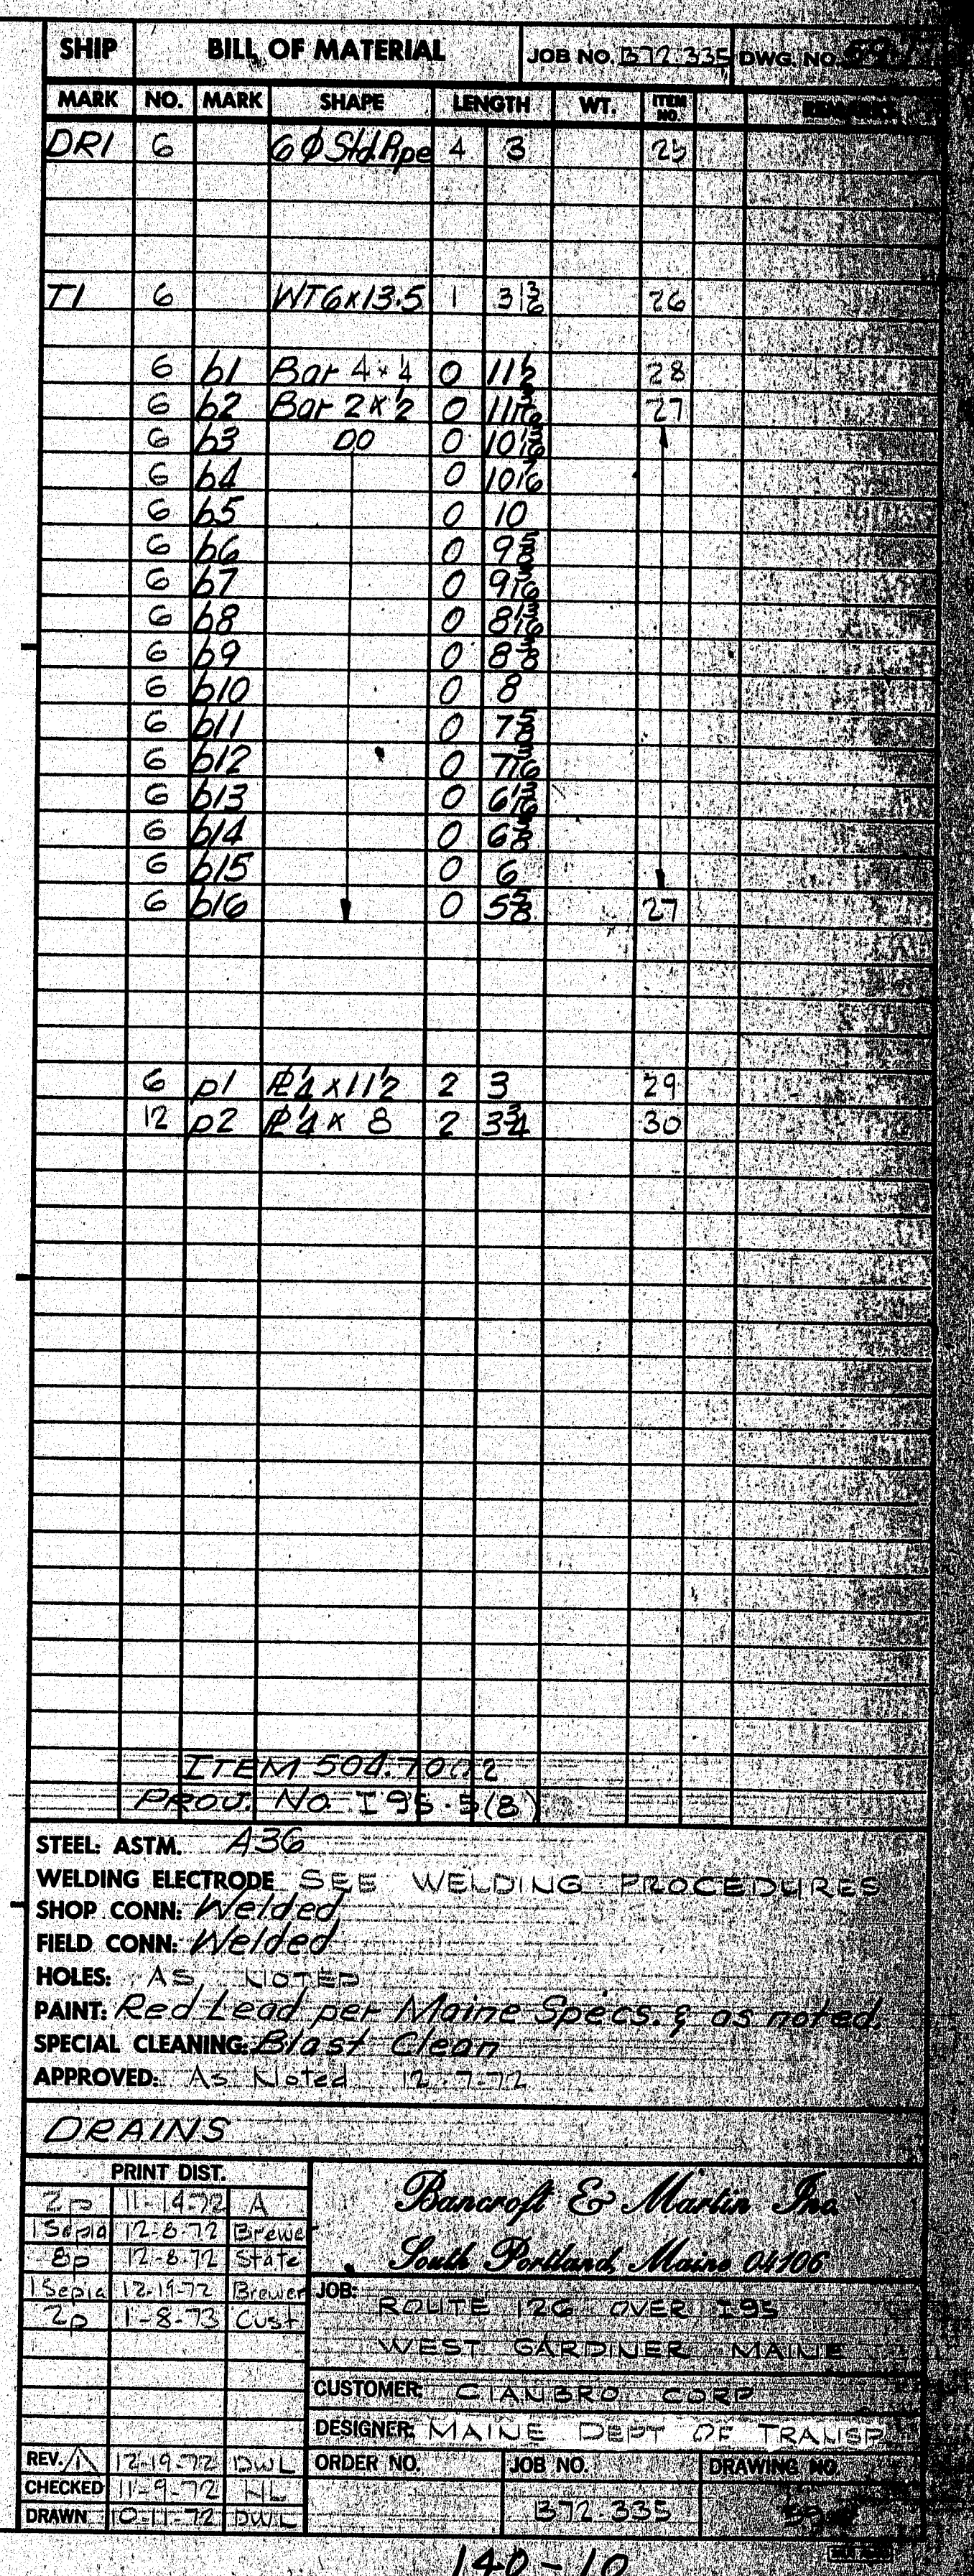 SHIP BILL OF MATERIAL JOB NO. B72.335 DWG. NO.
MARK NO. MARK SHAPE LENGTH WT. ITEM NO.
DR1 6 6 Ø Std. Pipe 4 3 25
T1 6 WT6x13.5 1 3 13/16 26
6 b1 Bar 4 x 1/4 0 11 1/2 28
6 b2 Bar 2 x 1/2 0 27
6 b3 DO 0 10 13/16
6 b4 0
6 b5 0 10
6 b6 0 9 5/8
6 b7 0 9 3/16
6 b8 0 8 13/16
6 b9 0 8 3/8
6 b10 0 8
6 b11 0 7 5/8
6 b12 0 7 3/16
6 b13 0 6 13/16
6 b14 0 6 3/8
6 b15 0 6
6 b16 0 5 5/8 27
6 p1 PL 1/4 x 11 1/2 2 3 29
12 p2 PL 1/4 x 8 2 3 3/4 30
ITEM 504.7002
PROJ. NO. I 95-5(8)
STEEL: ASTM. A36
WELDING ELECTRODE SEE WELDING PROCEDURES
SHOP CONN: Welded
FIELD CONN: Welded
HOLES: AS NOTED
PAINT: Red Lead per Maine Specs. & as noted.
SPECIAL CLEANING: Blast Clean
APPROVED: As Noted 12-7-72
DRAINS
PRINT DIST.
2p 11-14-72 A
1 Sepia 12-8-72 Brewer
8p 12-8-72 State
1 Sepia 12-19-72 Brewer
2p 1-8-73 Cust
Bancroft & Martin Inc.
South Portland, Maine 04106
JOB: ROUTE 126 OVER I95
WEST GARDINER MAINE
CUSTOMER: CIANBRO CORP
DESIGNER: MAINE DEPT OF TRANSP.
REV. 1 12-19-72 DWL
CHECKED 11-9-72 HL
DRAWN 10-11-72 DWL
ORDER NO. JOB NO. DRAWING NO.
B72-335
140-10